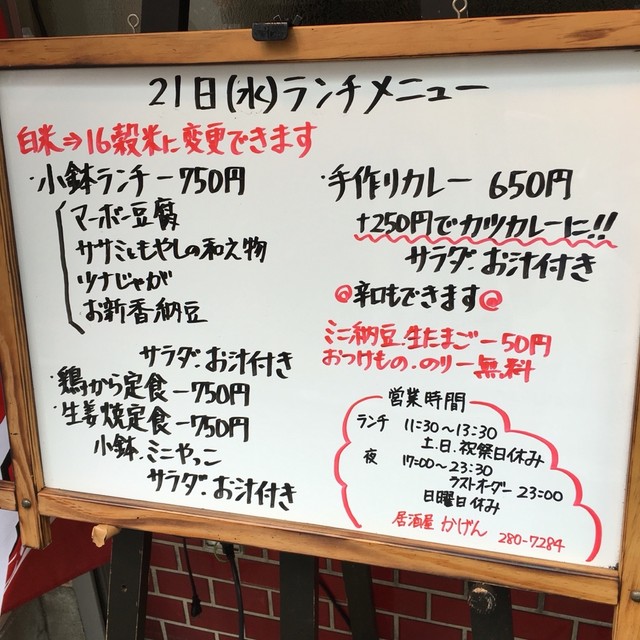 21日(水)ランチメニュー
白米⇒16穀米に変更できます
・小鉢ランチー750円
マーボー豆腐
ササミともやしの和え物
ツナじゃが
お新香.納豆
サラダ.お汁付き
・鶏から定食ー750円
・生姜焼定食ー750円
小鉢.ミニやっこ
サラダ.お汁付き
・手作りカレー 650円
+250円でカツカレーに!!
サラダ.お汁付き
◎辛口もできます◎
ミニ納豆.生たまごー50円
おつけもの.のりー無料
営業時間
ランチ 11:30〜13:30
土.日.祝祭日休み
夜 17:00〜23:30
ラストオーダー 23:00
日曜日休み
居酒屋 かげん 280-7284